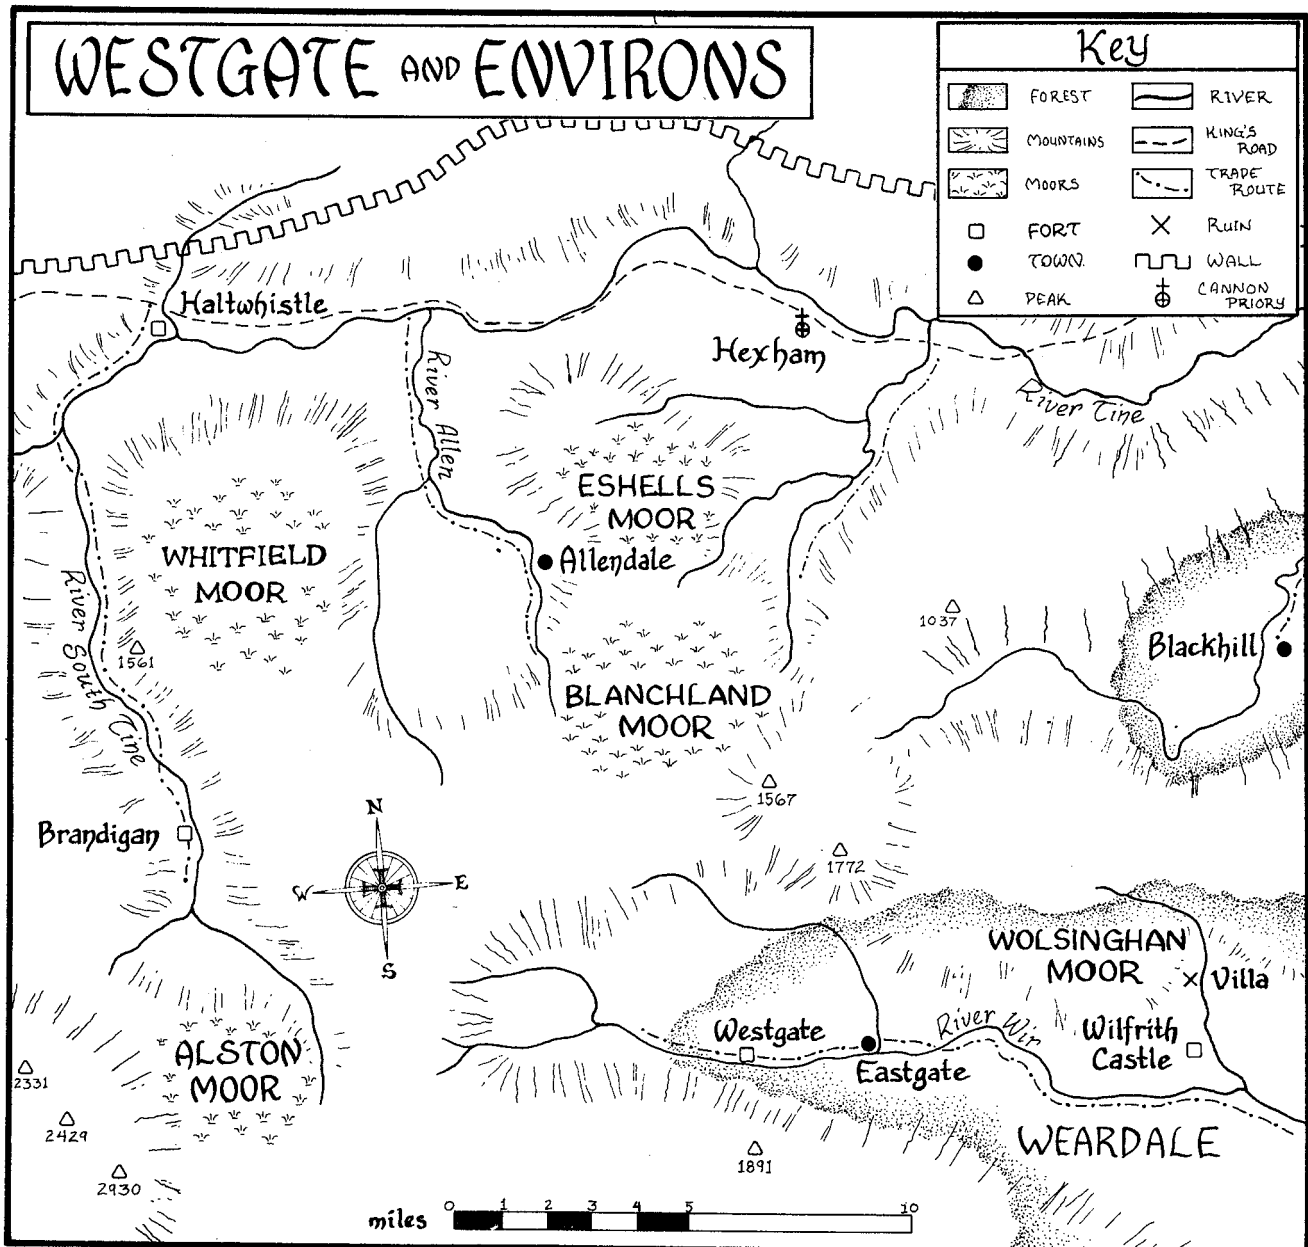 WESTGATE AND ENVIRONS
Key
FOREST
RIVER
MOUNTAINS
KING'S
ROAD
MOORS
TRADE
ROUTE
FORT
RUIN
TOWN.
WALL
PEAK
CANNON
PRIORY
Haltwhistle
Hexham
River Tine
River Allen
ESHELLS
MOOR
WHITFIELD
MOOR
Allendale
River South Tine
1561
1037
Blackhill
BLANCHLAND
MOOR
1567
Brandigan
N
W
E
S
1772
WOLSINGHAN
MOOR
Villa
Westgate
River Wir
Wilfrith
Castle
Eastgate
ALSTON
MOOR
2331
2429
2930
WEARDALE
1891
miles
0 1 2 3 4 5 10